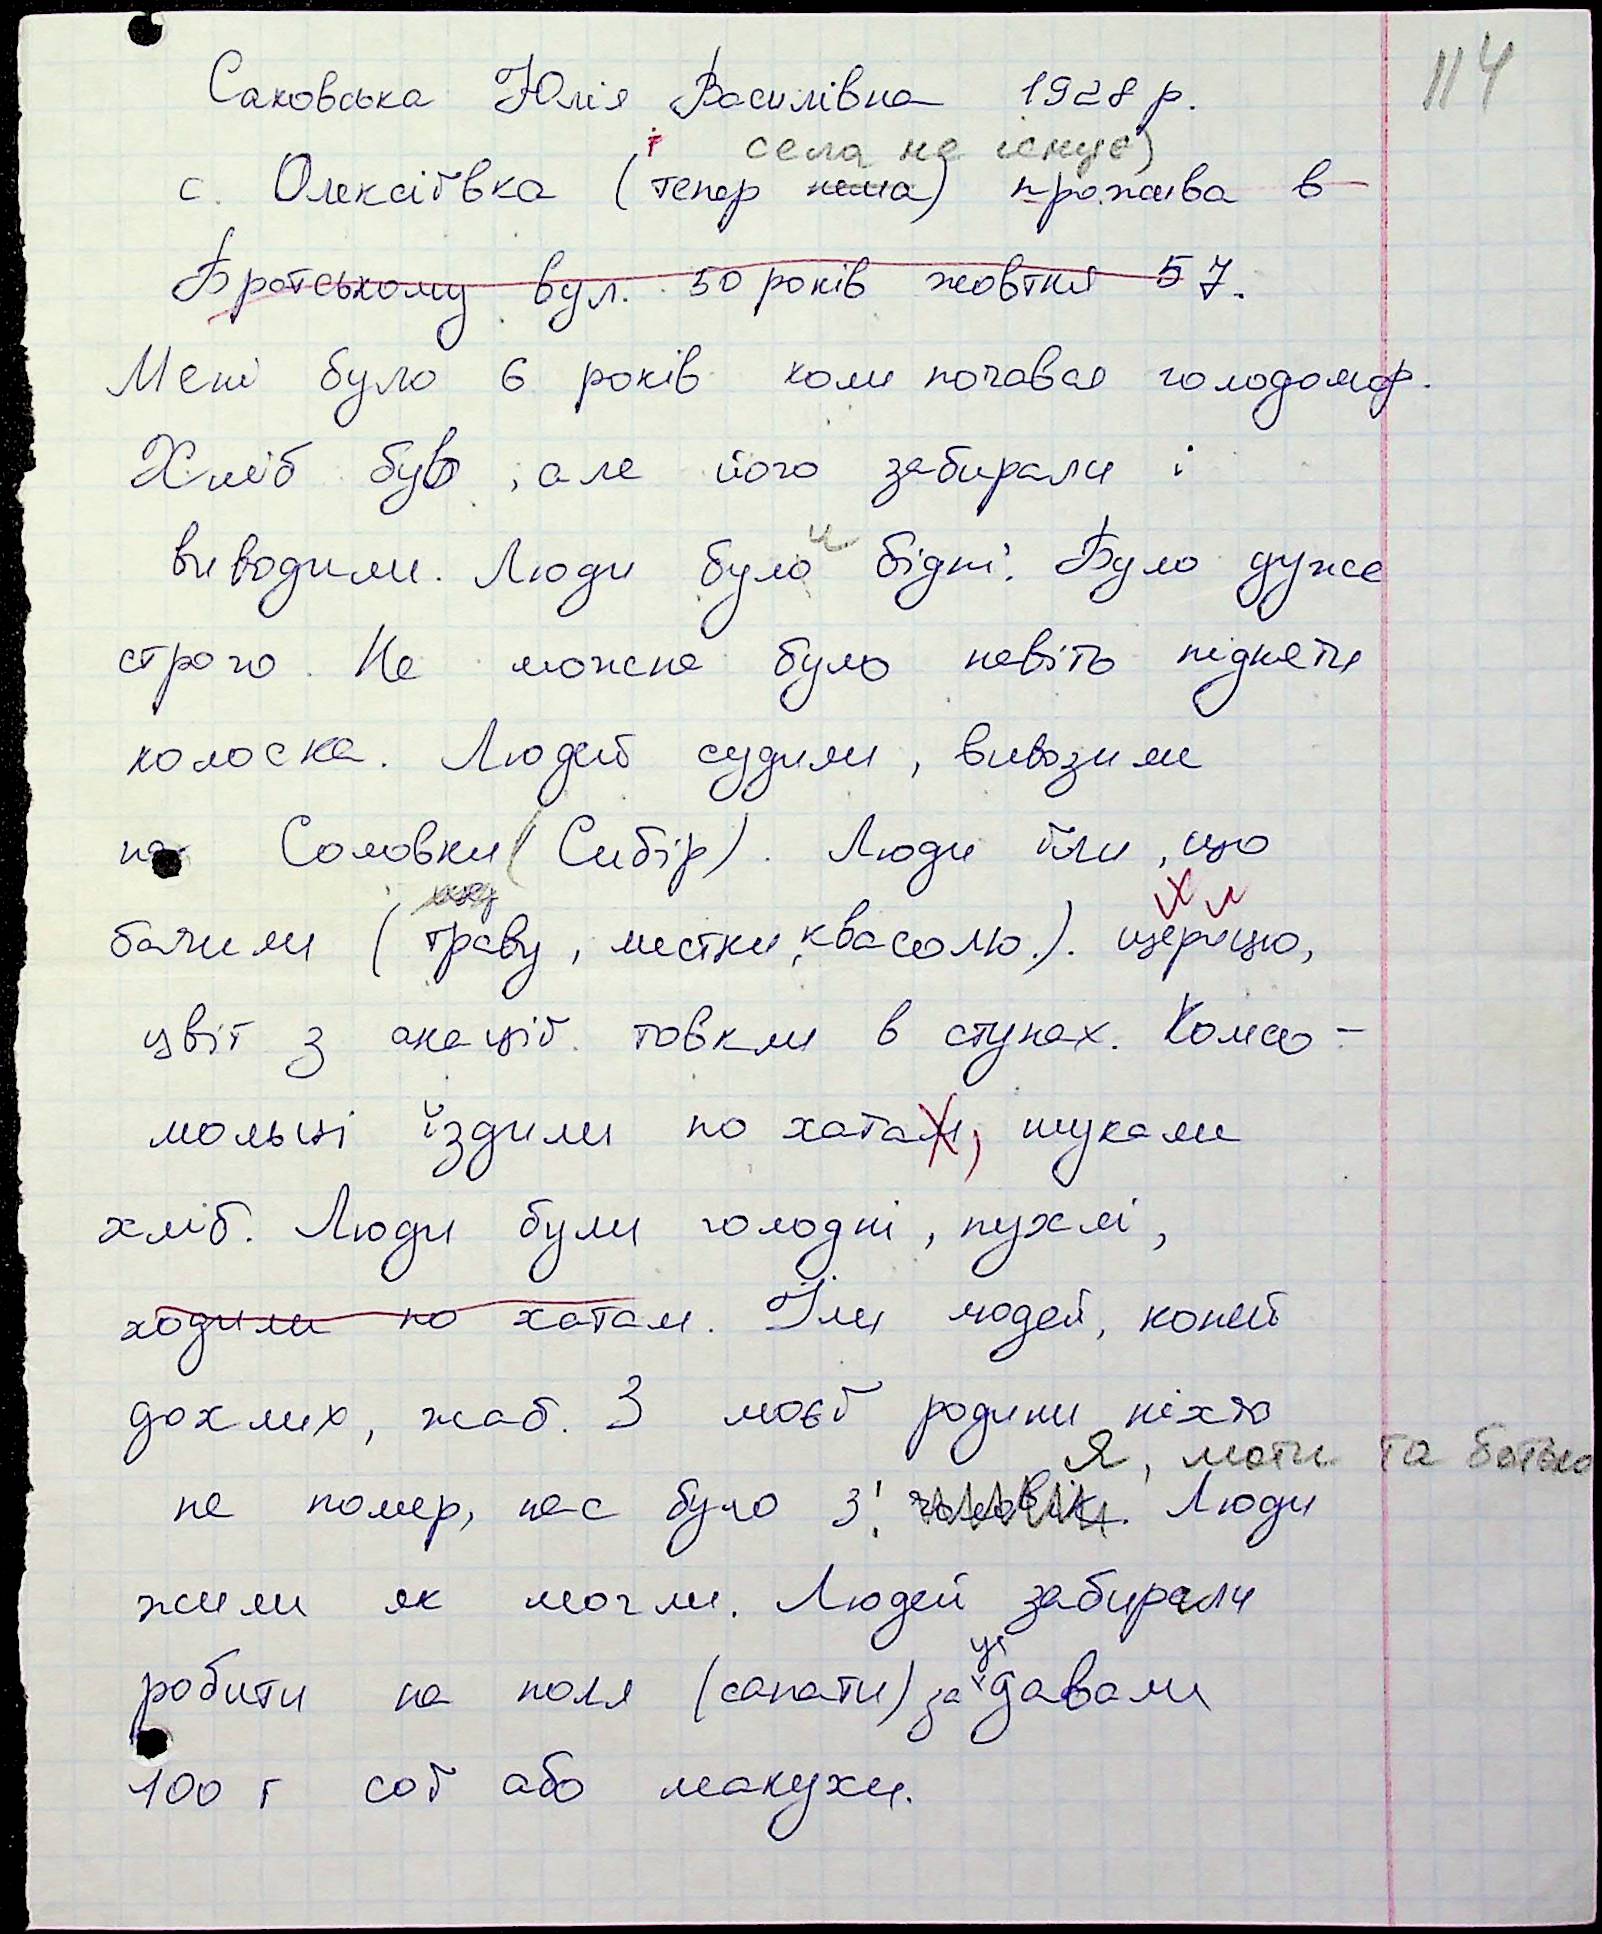 114
Саковська Юлія Василівна 1928 р.
села не існує)
с. Олексіївка (тепер нема) прожива в
Братському вул. 50 років жовтня 57.
Мені було 6 років коли почався голодомор.
Хліб був, але його забирали і
виводили. Люди було и бідні. Було дуже
строго. Не можна було навіть підняти
колоска. Людей судили, вивозили
на Соловки (Сибір). Люди їли, що
бачили (траву, листки, квасолю.). щерицю,
цвіт з акацій товкли в ступах. Комсо-
мольці їздили по хатах, шукали
хліб. Люди були голодні, пухлі,
ходили по хатам. Їли людей, коней
дохлих, жаб. З моєї родини ніхто
Я, мати та батько
не помер, нас було 3: чоловік. Люди
жили як могли. Людей забирали
робити на поля (сапати) за це давали
100 г сої або макухи.